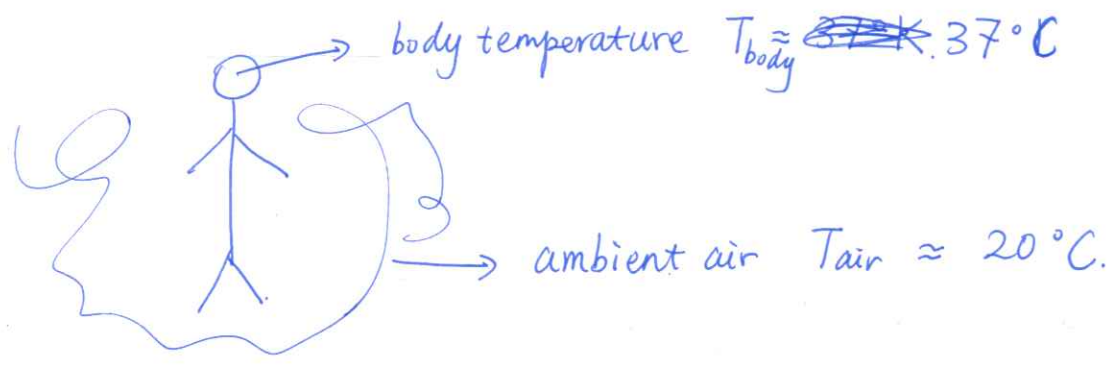 body temperature T_body ≈ 37°C
ambient air T_air ≈ 20°C.